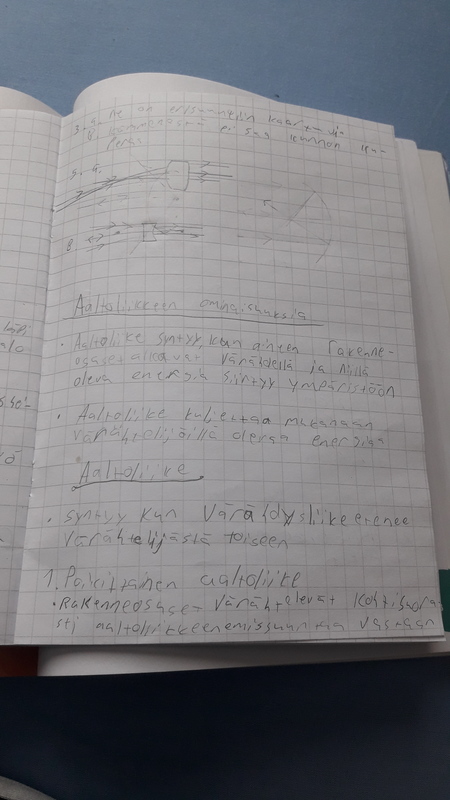 3. a. Ne on erisuuntiin kaartuvia
B. kummenosta ei saa kunnon ku-
5. a.
B.
Aaltoliikkeen ominaisuuksia
• Aaltoliike syntyy, kun aineen rakenne-
osaset alkavat värähdellä ja niillä
oleva energia siirtyy ympäristöön
• Aaltoliike kuljettaa mukanaan
värähtelijöillä olevaa energiaa
Aaltoliike
• syntyy kun värähdysliike etenee
värähtelijästä toiseen
1. Poikittainen aaltoliike
• Rakenneosaset värähtelevät kohtisuora-
sti aaltoliikkeen etenemissuuntaa vastaan